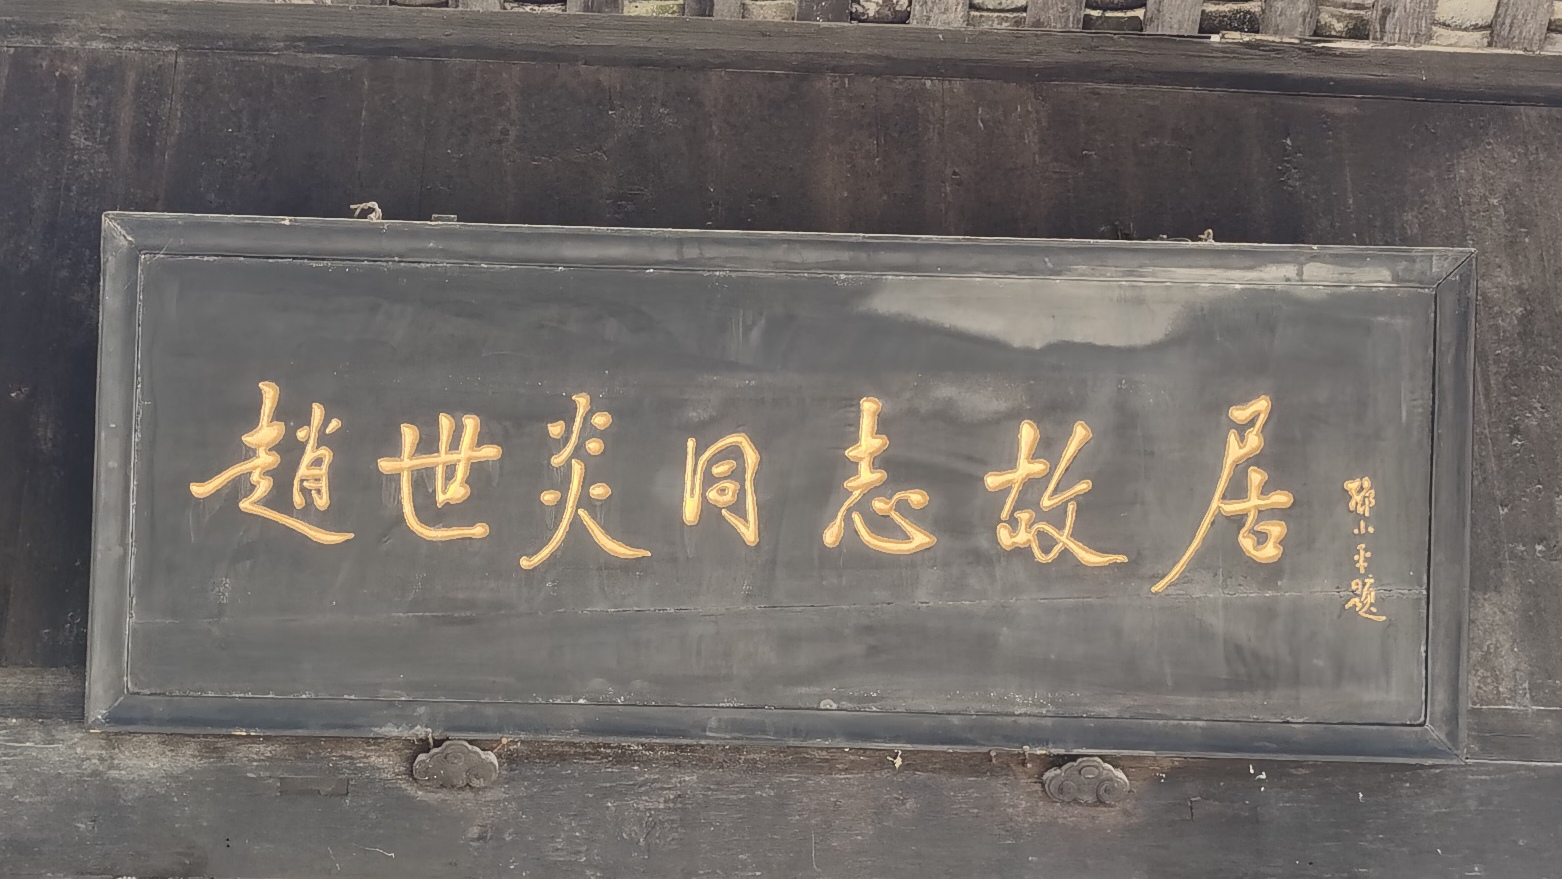 趙世炎同志故居
鄧小平題